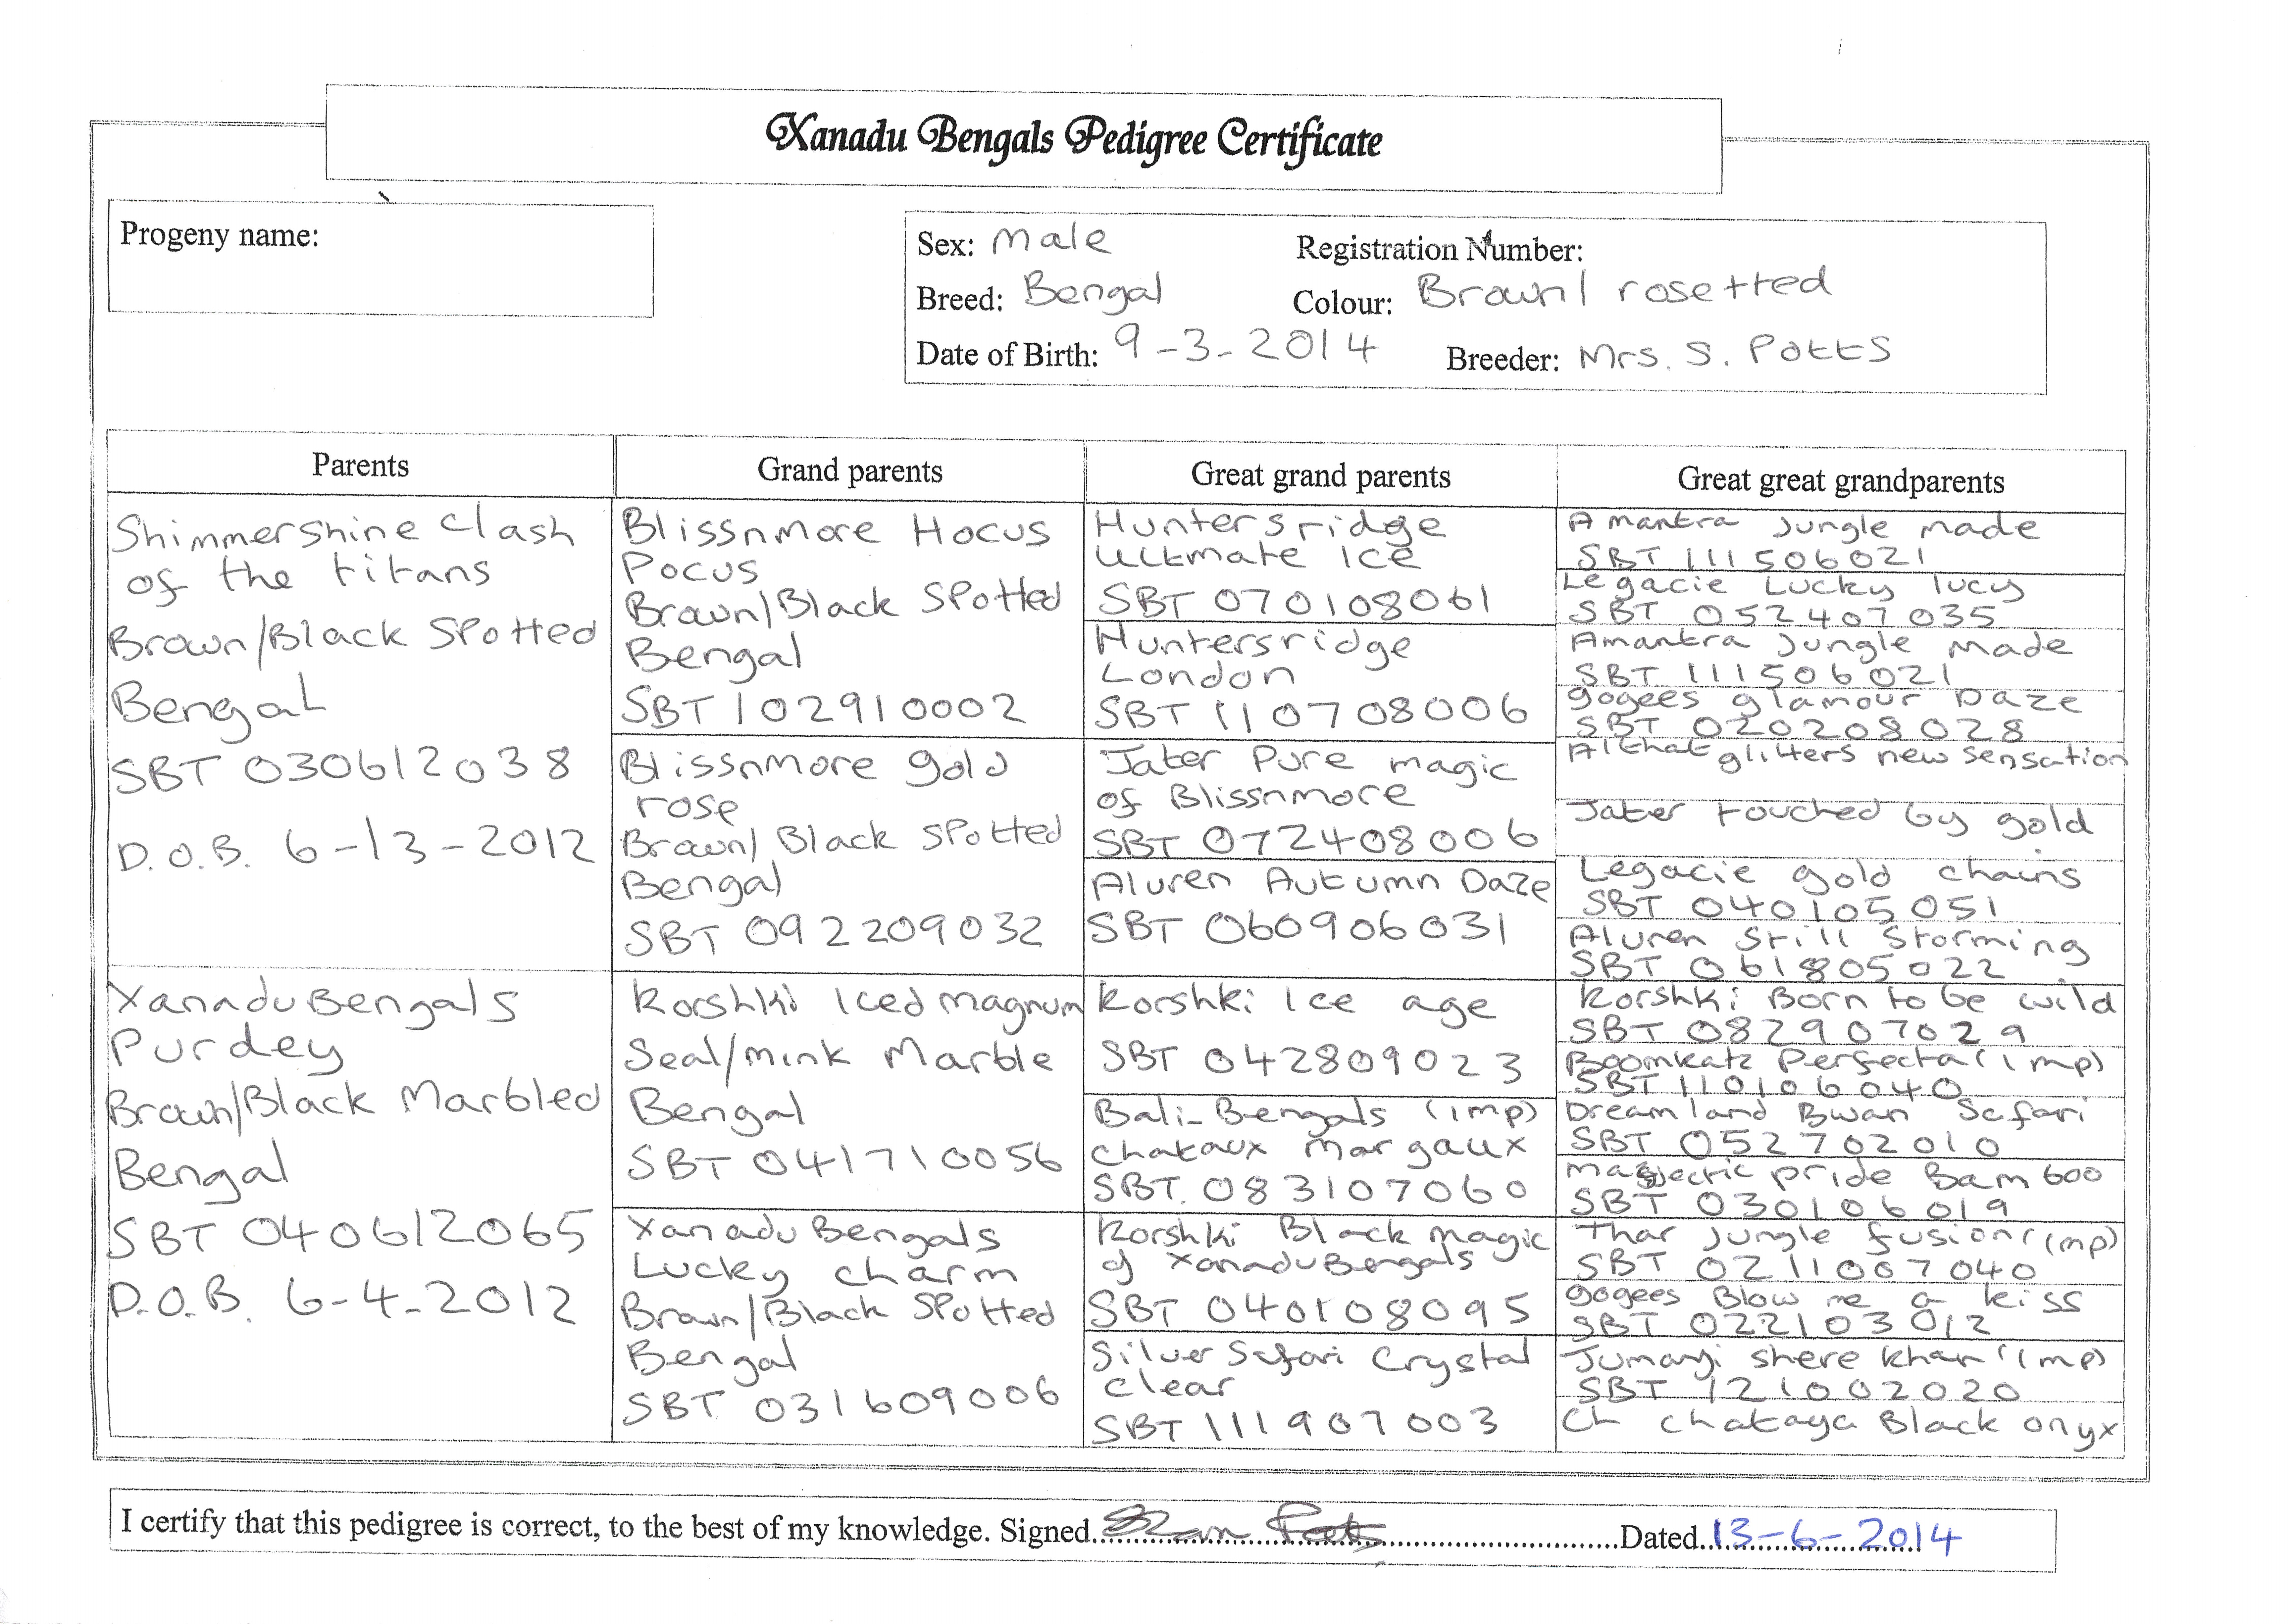 Xanadu Bengals Pedigree Certificate
Progeny name:
Sex: Male
Registration Number:
Breed: Bengal
Colour: Brown/ rosetted
Date of Birth: 9-3-2014
Breeder: Mrs. S. Potts
Parents
Shimmershine Clash
of the titans
Brown/Black Spotted
Bengal
SBT 030612038
D.O.B. 6-13-2012
Xanadu Bengals
Purdey
Brown/Black Marbled
Bengal
SBT 040612065
D.O.B. 6-4-2012
Grand parents
Blissnmore Hocus
Pocus
Brown/Black Spotted
Bengal
SBT 102910002
Blissnmore gold
rose
Brown/ Black Spotted
Bengal
SBT 092209032
Korshki Iced magnum
Seal/mink Marble
Bengal
SBT 041710056
Xanadu Bengals
Lucky charm
Brown/Black Spotted
Bengal
SBT 031609006
Great grand parents
Huntersridge
Ultmate Ice
SBT 070108061
Huntersridge
London
SBT 110708006
Jater Pure magic
of Blissnmore
SBT 072408006
Aluren Autumn Daze
SBT 060906031
Korshki Ice age
SBT 042809023
Bali-Bengals (imp)
chataux Margaux
SBT. 083107060
Korshki Black magic
of XanaduBengals
SBT 040108095
Silver Safari Crystal
clear
SBT 111907003
Great great grandparents
Amantra Jungle made
SBT 111506021
Legacie Lucky lucy
SBT 052407035
Amantra Jungle Made
SBT 111506021
gogees glamour Daze
SBT 020208028
Allthat glitters new sensation
Jater touched by gold
Legacie gold chains
SBT 040105051
Aluren Still Storming
SBT 061805022
Korshki Born to be wild
SBT 082907029
Boomkatz Perfecta (imp)
SBT 110106040
Dreamland Bwan Safari
SBT 052702010
pride Bamboo
SBT 030106019
Thar Jungle fusion (imp)
SBT 0211007040
gogees Blow me a kiss
SBT 022103012
Jumanji shere khan (imp)
SBT 121002020
Ch chataya Black onyx
I certify that this pedigree is correct, to the best of my knowledge. Signed Potts Dated 13-6-2014